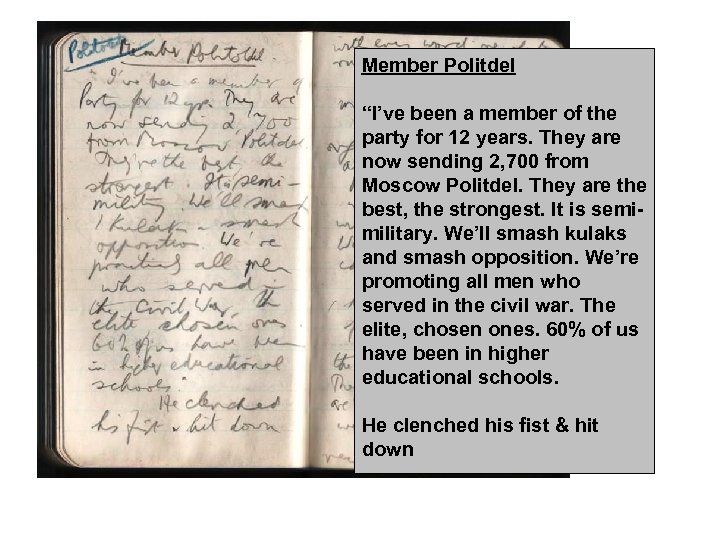 Politdel
Member Politotdel.
"I've been a member of
Party for 12 years. They are
now sending 2,700
from Moscow Politdel.
They're the best the
strongest. It is semi-
military. We'll smash
kulaks & smash
opposition. We're
promoting all men
who served in
the Civil War. The
elite chosen ones.
60% of us have been
in higher educational
schools."
He clenched
his fist & hit down
with every word
Member Politdel
“I’ve been a member of the
party for 12 years. They are
now sending 2,700 from
Moscow Politdel. They are the
best, the strongest. It is semi-
military. We’ll smash kulaks
and smash opposition. We’re
promoting all men who
served in the civil war. The
elite, chosen ones. 60% of us
have been in higher
educational schools.
He clenched his fist & hit
down